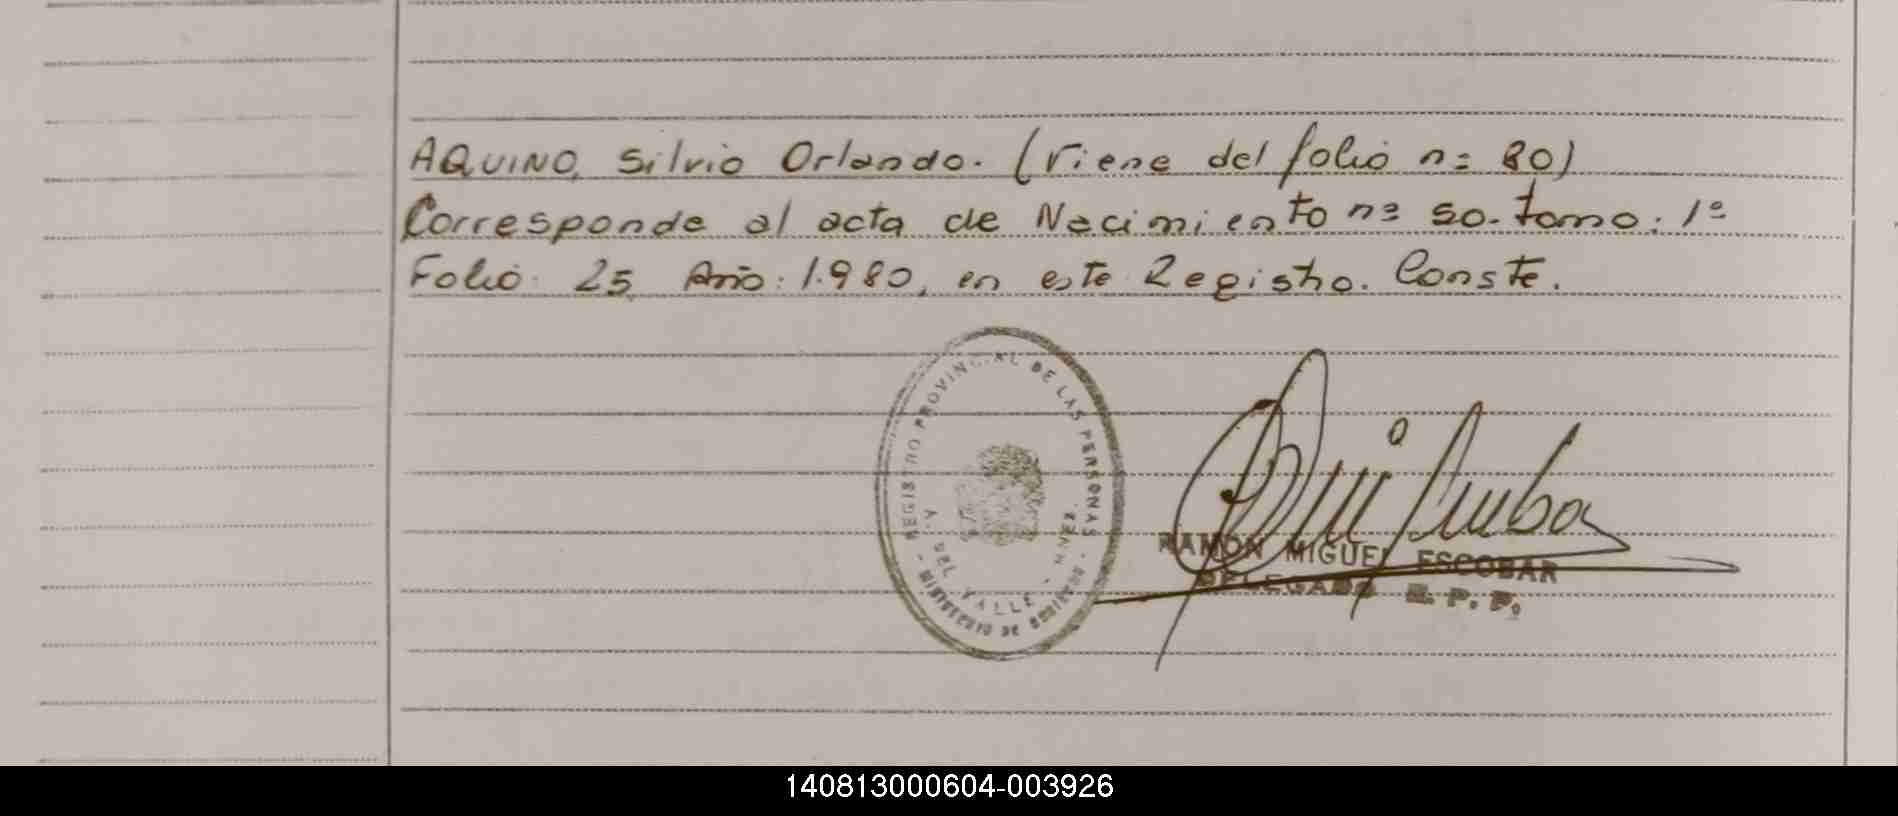 AQUINO, Silvio Orlando. (Viene del folio nº 80)
Corresponde al acta de Nacimiento nº 50. tomo: 1º
Folio 25, Año: 1.980, en este Registro. Conste.
REGISTRO PROVINCIAL DE LAS PERSONAS
MINISTERIO DE GOBIERNO
DEL VALLE
RAMON MIGUEL ESCOBAR
DELEGADO R. P. P.
140813000604-003926